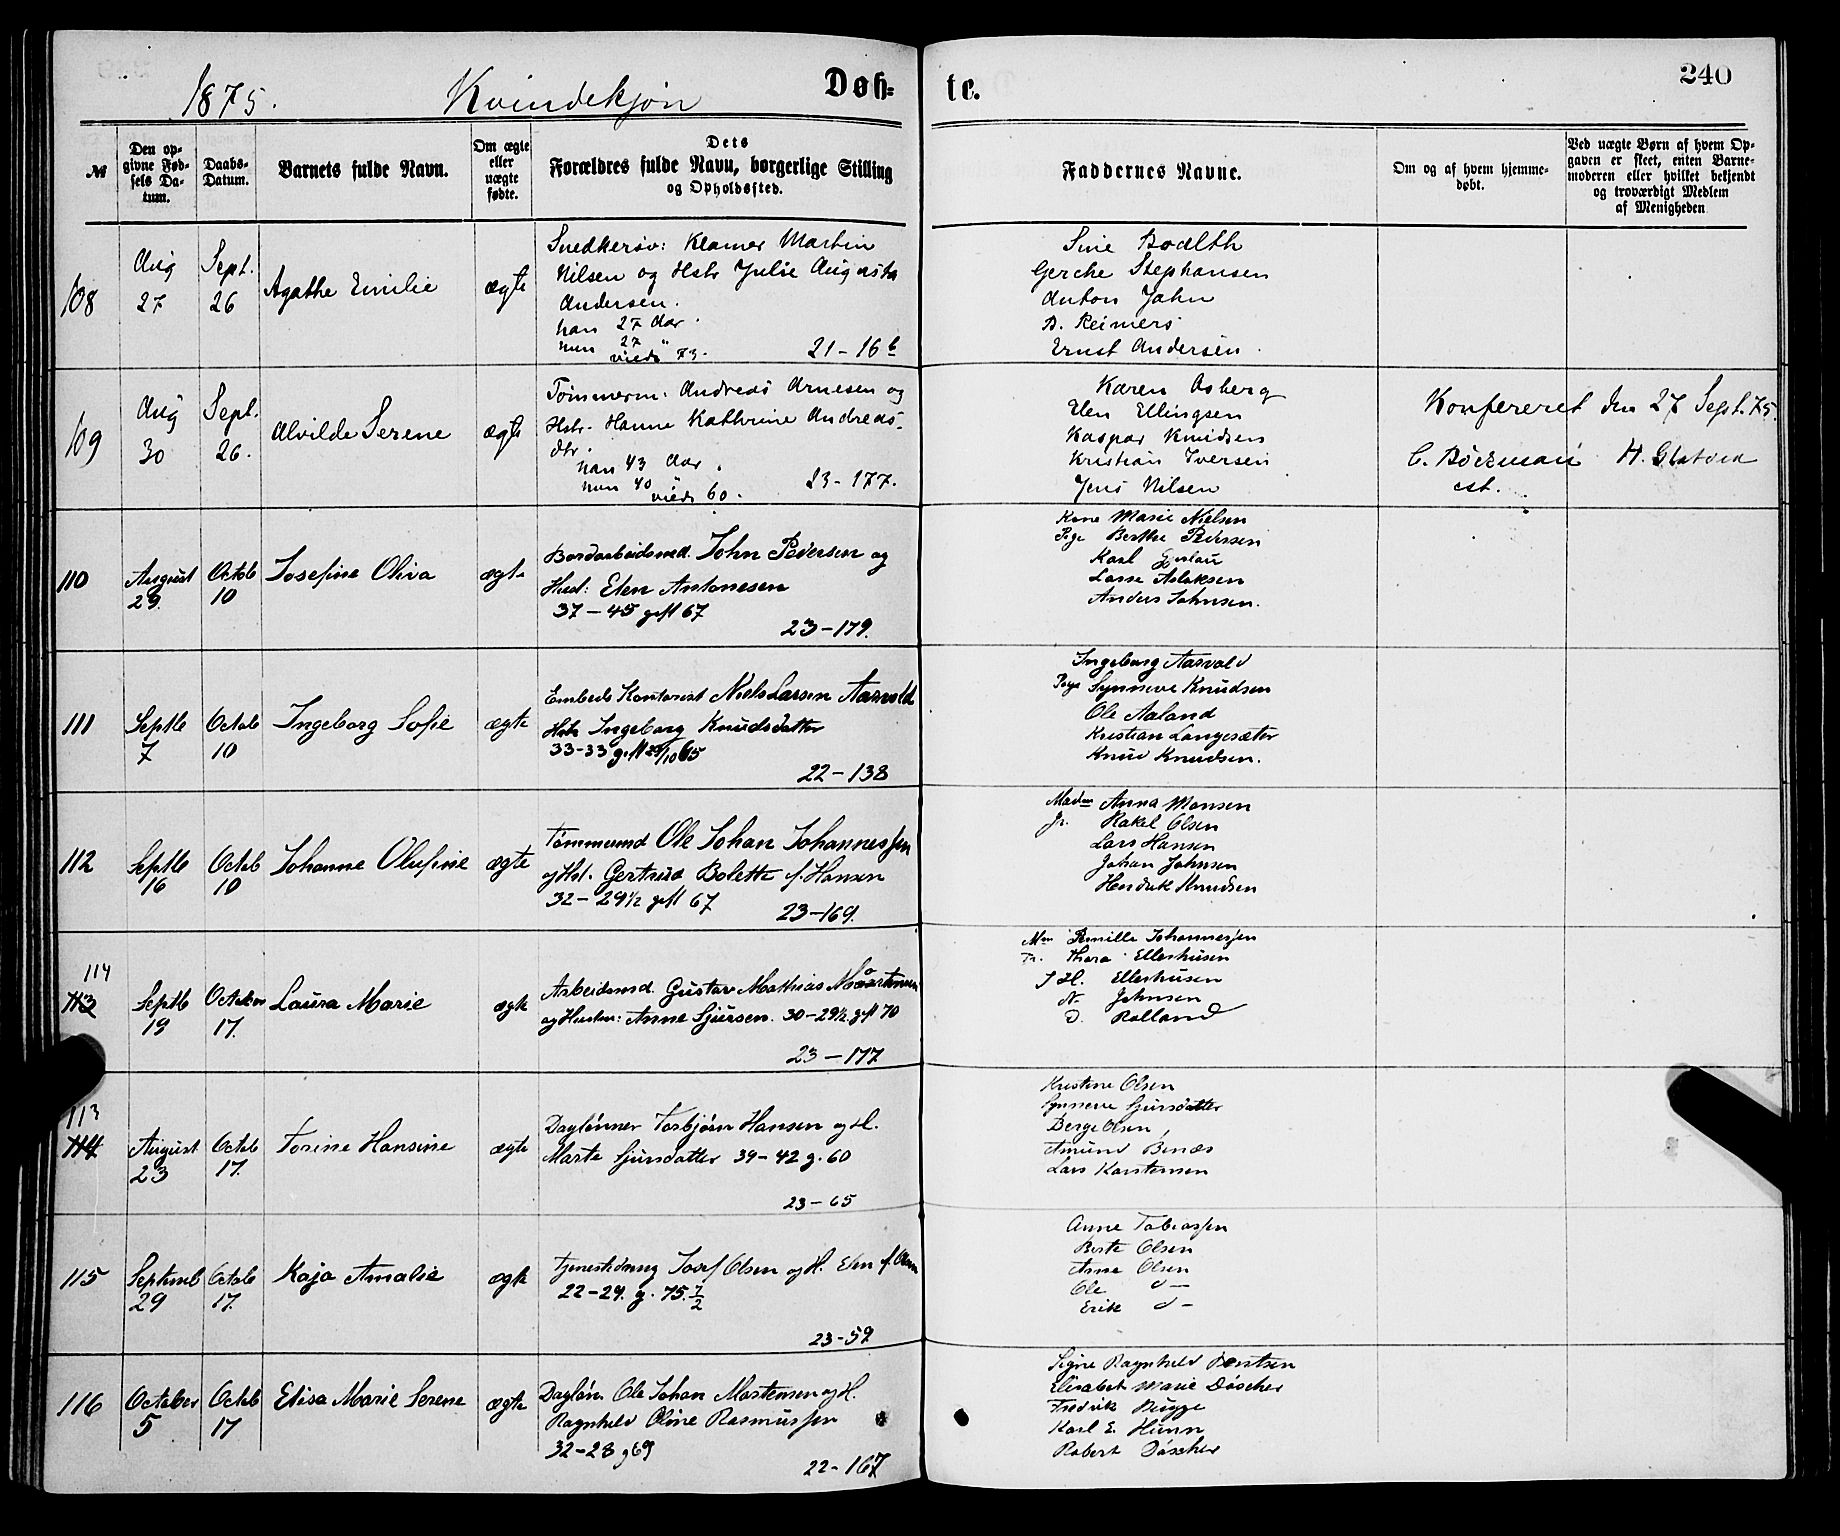 1875. Kvindekjøn Døb= te. 240
№
Den opgivne Fødsels Datum.
Daabs-Datum.
Barnets fulde Navn.
Om ægte eller uægte fødte.
Dets Forældres fulde Navn, borgerlige Stilling og Opholdssted.
Faddernes Navne.
Om og af hvem hjemmedøbt.
Ved uægte Børn af hvem Opgaven er skeet, enten Barnemoderen eller hvilket bekjendt og troværdigt Medlem af Menigheden
108 Aug 27 Sept. 26 Agathe Emilie ægte
Snedkersv: Klamer Martin
Nilsen og Hstr Julie Augusta
Andersen.
han 27 Aar.
hun 27 "
viede 73. 21-16b
Sine Boalth
Gerche Stephansen
Anton Jahn
B. Reimers
Ernst Andersen.
109 Aug 30 Sept. 26. Alvilde Serene ægte
Tømmerm: Andreas Arnesen og
Hstr. Hanne Kathrine Andreas-
dtr.
han 43 Aar.
hun 40 "
viede 60. 23-177.
Karen Asberg
Elen Ellingsen
Kaspar Knudsen
Kristian Iversen
Jens Nilsen
Konfereret den 27 Sept. 75.
C. Böckman H.
est.
110 August 29. Octob 10 Josefine Oliva ægte
Bordarbeidsmd. John Pedersen og
Hust: Elen Antonesen
37-45 gift 67
23-179.
Kone Marie Nielsen
Pige Berthe Petersen
Karl
Lasse Aslaksen
Anders Johnsen.
111 Septb 7 Octob 10 Ingeborg Sofie ægte
Embeds Kontorist Niels Larsen Aarvold
Hstr Ingeborg Knudsdatter
33-33 gift 29/10 65
22-138
Ingeborg Aarvold
Pige Synneve Knudsen
Ole Aaland
Kristian Langesæter
Knud Knudsen.
112 Septb 16 Octob 10 Johanne Olufine ægte
Tømmermd Ole Johan Johannessen
og Hst. Gertrud Bolette f. Hansen
32-29½ gift 67
23-169.
Madm Anna Monsen
Jr. Rakel Olsen
Lars Hansen
Johan Johnsen
Hendrik Knudsen
114
113 Septb 19 October 17. Laura Marie ægte
Arbeidsmd. Gustav Mathias Maartensen
og Hustru: Anne Sjursen. 30-29½. gift 70
23-177
Mm Pernille Johannessen
Fr. Thora Ellerhusen
J H. Ellerhusen
N. Johnsen
D. Rolland
113
114 August 23 Octob 17. Torine Hansine ægte
Dagløner Torbjørn Hansen og H.
Marte Sjursdatter 39-42 g. 60
23-65
Kristine Olsen
Synneve Sjursdatter
Berge Olsen
Amund Benæs
Lars Karstensen
115 Septemb 29 Octob 17. Kaja Amalie ægte
Tjenestedreng Josef Olsen og H. Elen f. Olsen
22-24. g. 75. 7/2
23-59
Anne Tobiassen
Berte Olsen
Anna Olsen
Ole d-
Erik d-
116 October 5 Octob 17 Elisa Marie Serene ægte
Dagløn. Ole Johan Mortensen og H.
Ragnhild Oline Rasmussen
32-28 g 69
22-167
Signe Ragnhild Bentsen
Elisabet Marie Döscher
Fredrik Brügge
Karl E. Hunn
Robert Döscher